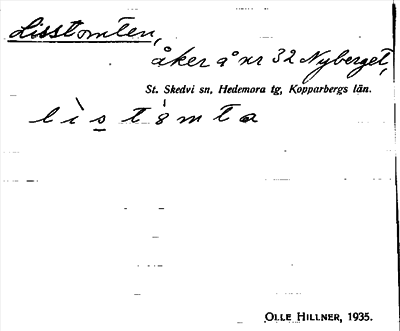 Lisstomten,
åker å nr 32 Nyberget,
St. Skedvi sn, Hedemora tg, Kopparbergs län.
OLLE HILLNER, 1935.